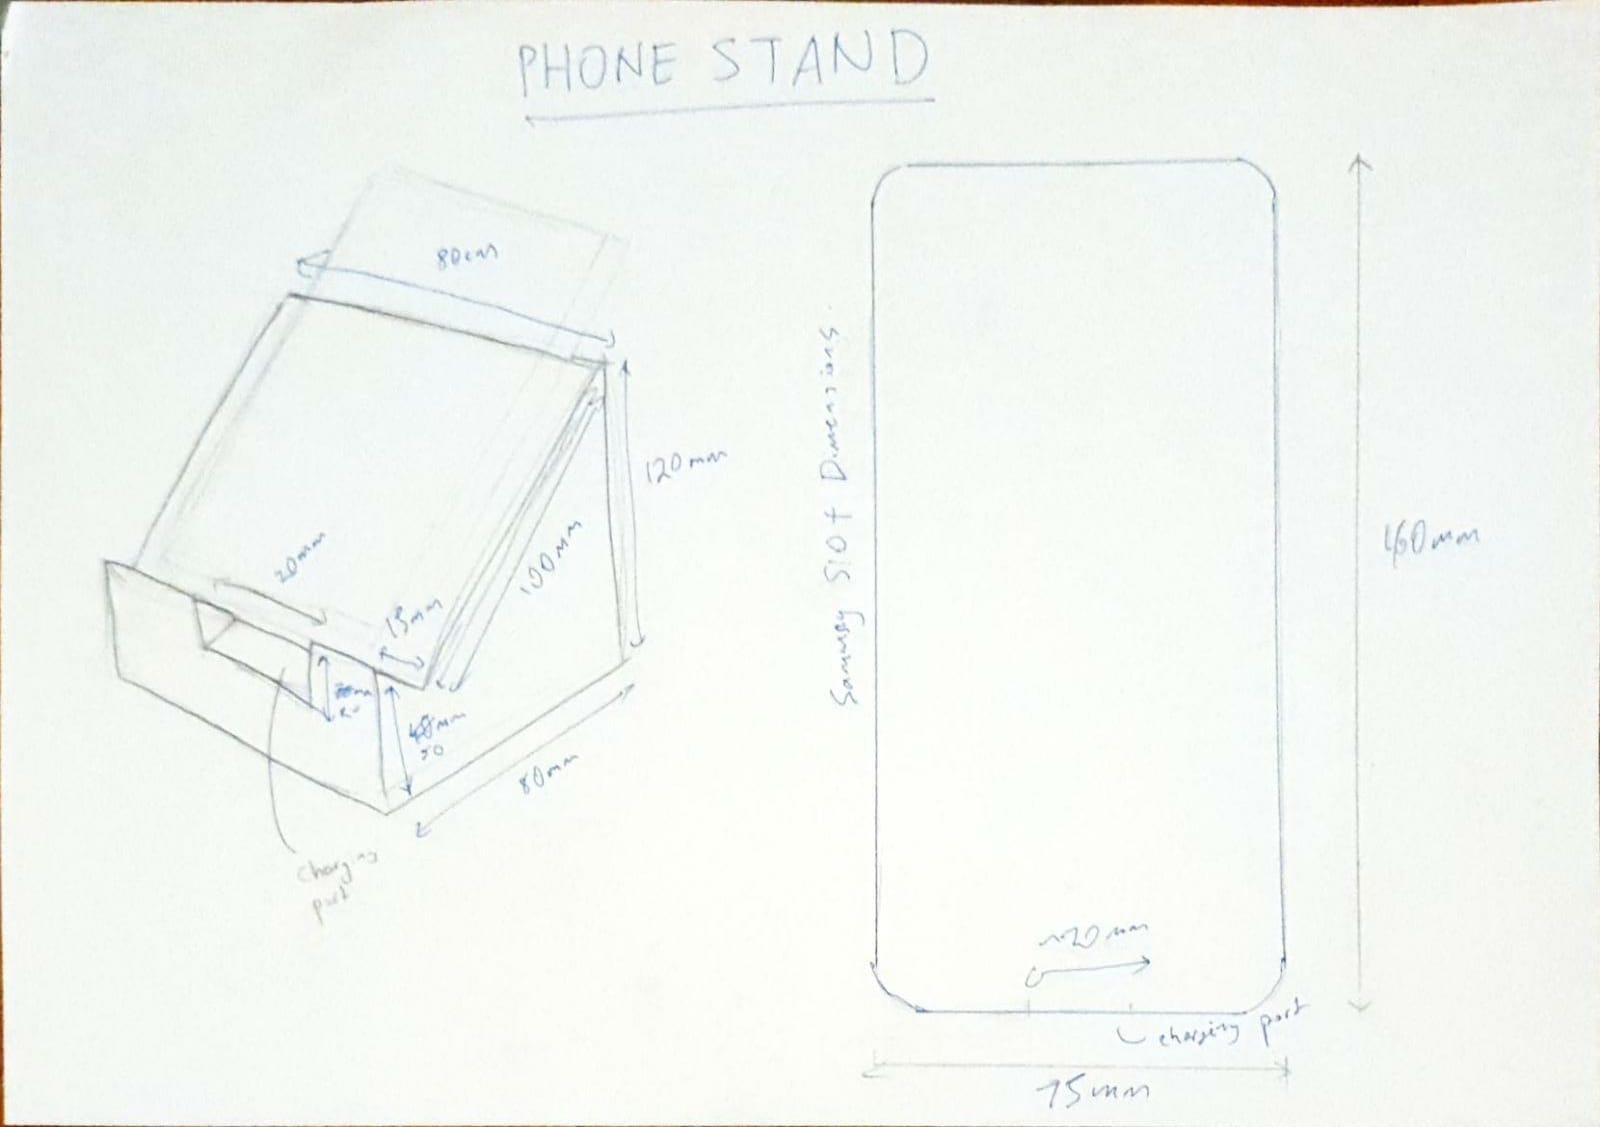 PHONE STAND
80mm
120mm
100mm
20mm
15mm
50
80mm
charging
port
Samsung S10+ Dimensions.
160mm
~20mm
charging port
75mm